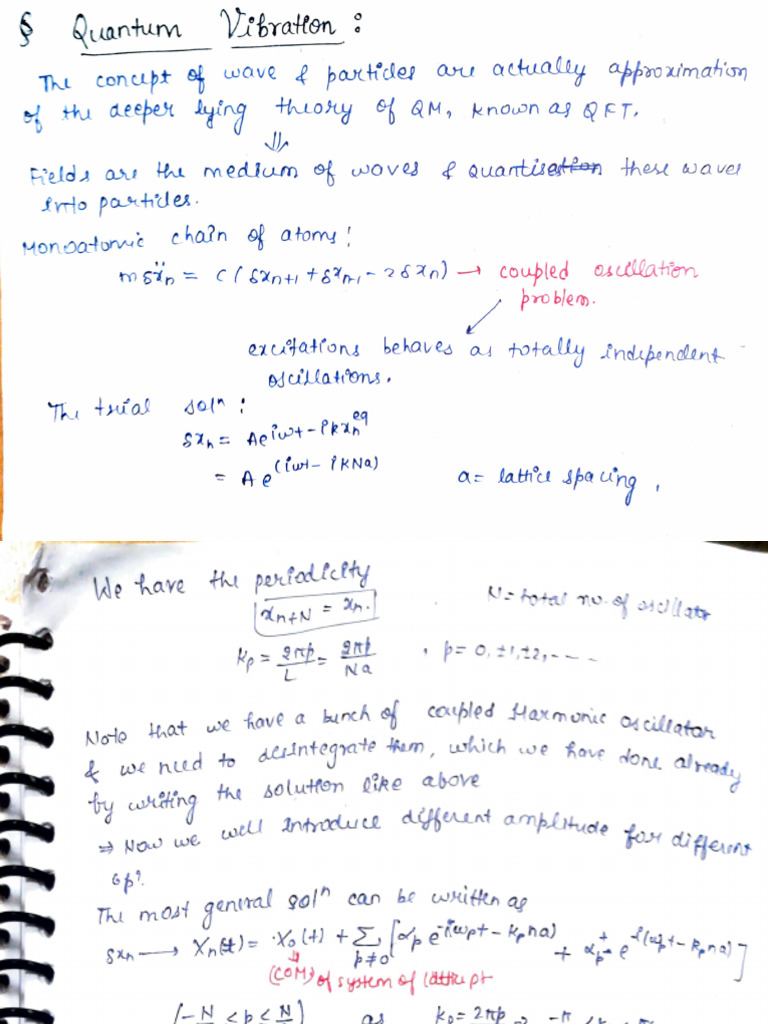 § Quantum Vibration :
The concept of wave & particles are actually approximation
of the deeper lying theory of QM, known as QFT.
⇓
Fields are the medium of waves & quantisation these waves
into particles.
Monoatomic chain of atoms!
mδẍn = C(δxn+1 + δxn-1 - 2δxn) → coupled oscillation
problem.
excitations behaves as totally independent
oscillations.
The trial solⁿ :
δxn = Ae^iωt - ikxn^eq
= Ae^(iωt - ikNa) a = lattice spacing,
We have the periodicity
xn+N = xn. N = total no. of oscillator
Kp = 2πp/L = 2πp/Na , p = 0, ±1, ±2, ----
Note that we have a bunch of coupled Harmonic oscillator
& we need to desintegrate them, which we have done already
by writing the solution like above
⇒ Now we well introduce different amplitude for different
The most general solⁿ can be written as
δxn → Xn(t) = X0(t) + Σ p≠0 [αp e^-i(ωpt - kpna) + αp^+ e^i(ωpt - kpna)]
(COM) of system of
(-N/ < p ≤ N/ ) as kp = 2πp